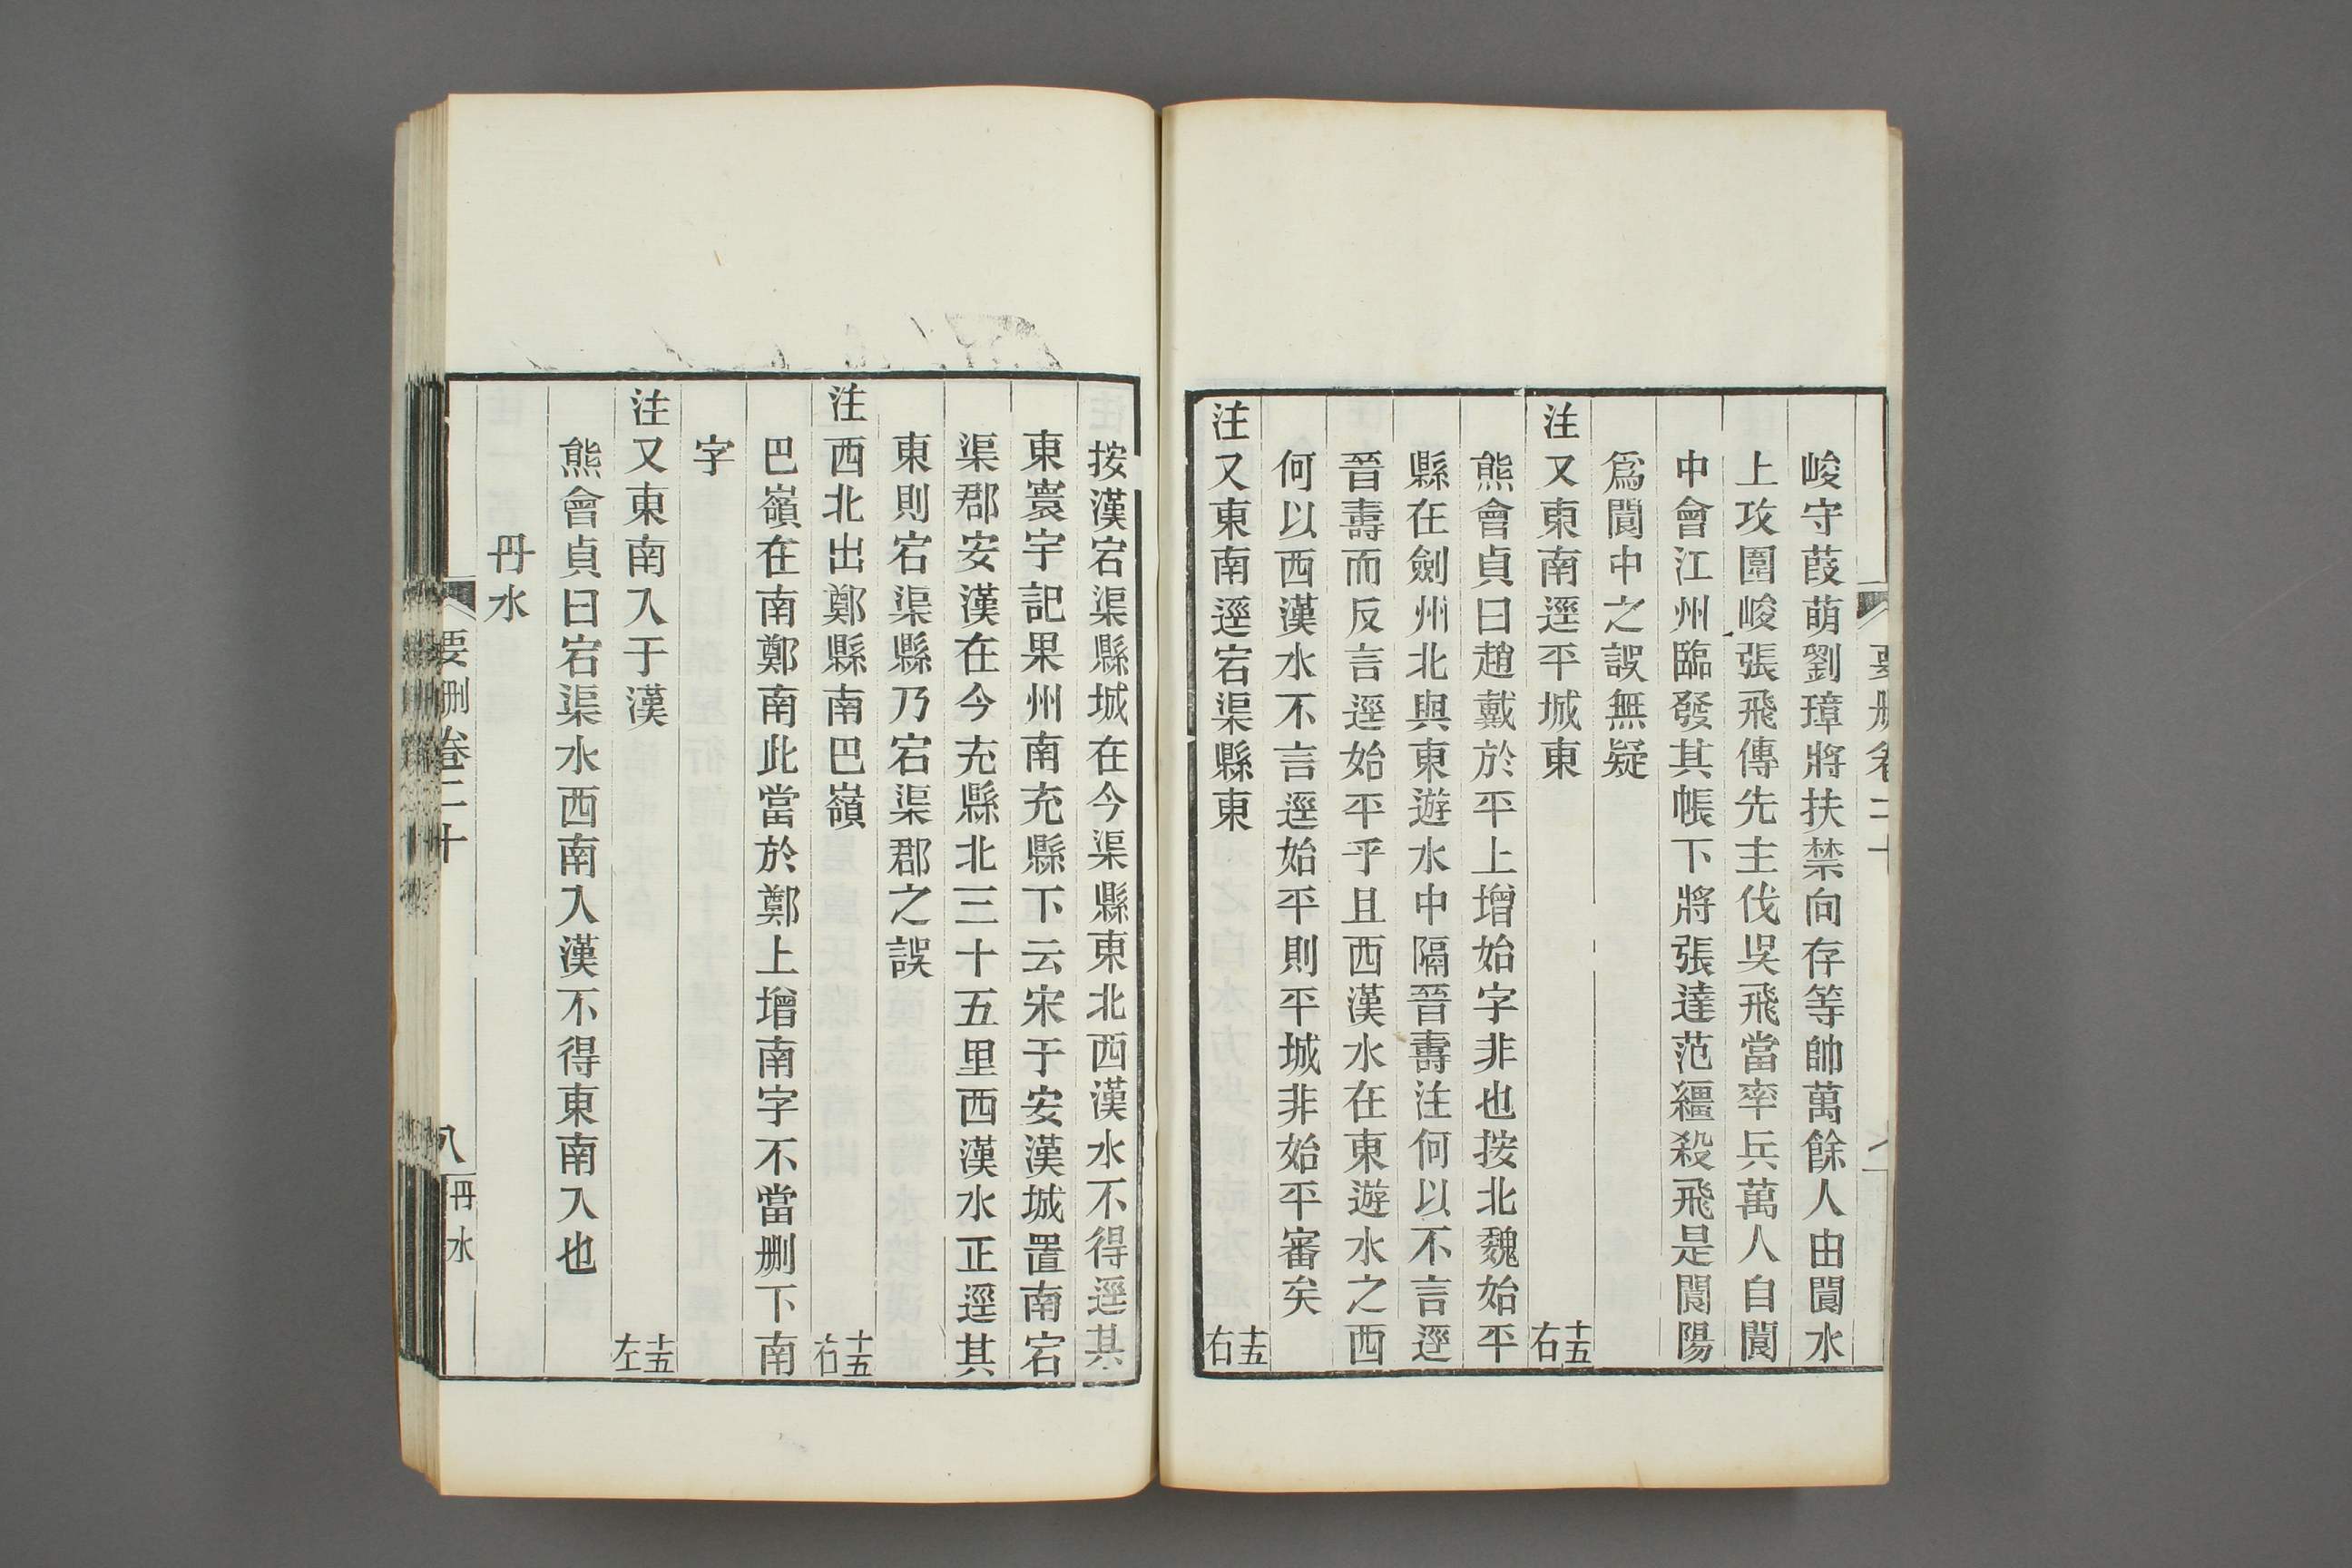 峻守葭萌劉璋將扶禁向存等帥萬餘人由閬水
上攻圍峻張飛傳先主伐吳飛當率兵萬人自閬
中會江州臨發其帳下將張達范繮殺飛是閬陽
爲閬中之誤無疑
注又東南逕平城東 十五右
熊會貞曰趙戴於平上增始字非也按北魏始平
縣在劍州北與東遊水中隔晉壽注何以不言逕
晉壽而反言逕始平乎且西漢水在東遊水之西
何以西漢水不言逕始平則平城非始平審矣
注又東南逕宕渠縣東 十五右
按漢宕渠縣城在今渠縣東北西漢水不得逕其
東寰宇記果州南充縣下云宋于安漢城置南宕
渠郡安漢在今充縣北三十五里西漢水正逕其
東則宕渠縣乃宕渠郡之誤
注西北出鄭縣南巴嶺 十五右
巴嶺在南鄭南此當於鄭上增南字不當刪下南
字
注又東南入于漢 十五左
熊會貞曰宕渠水西南入漢不得東南入也
丹水
要刪卷二十 八 丹水